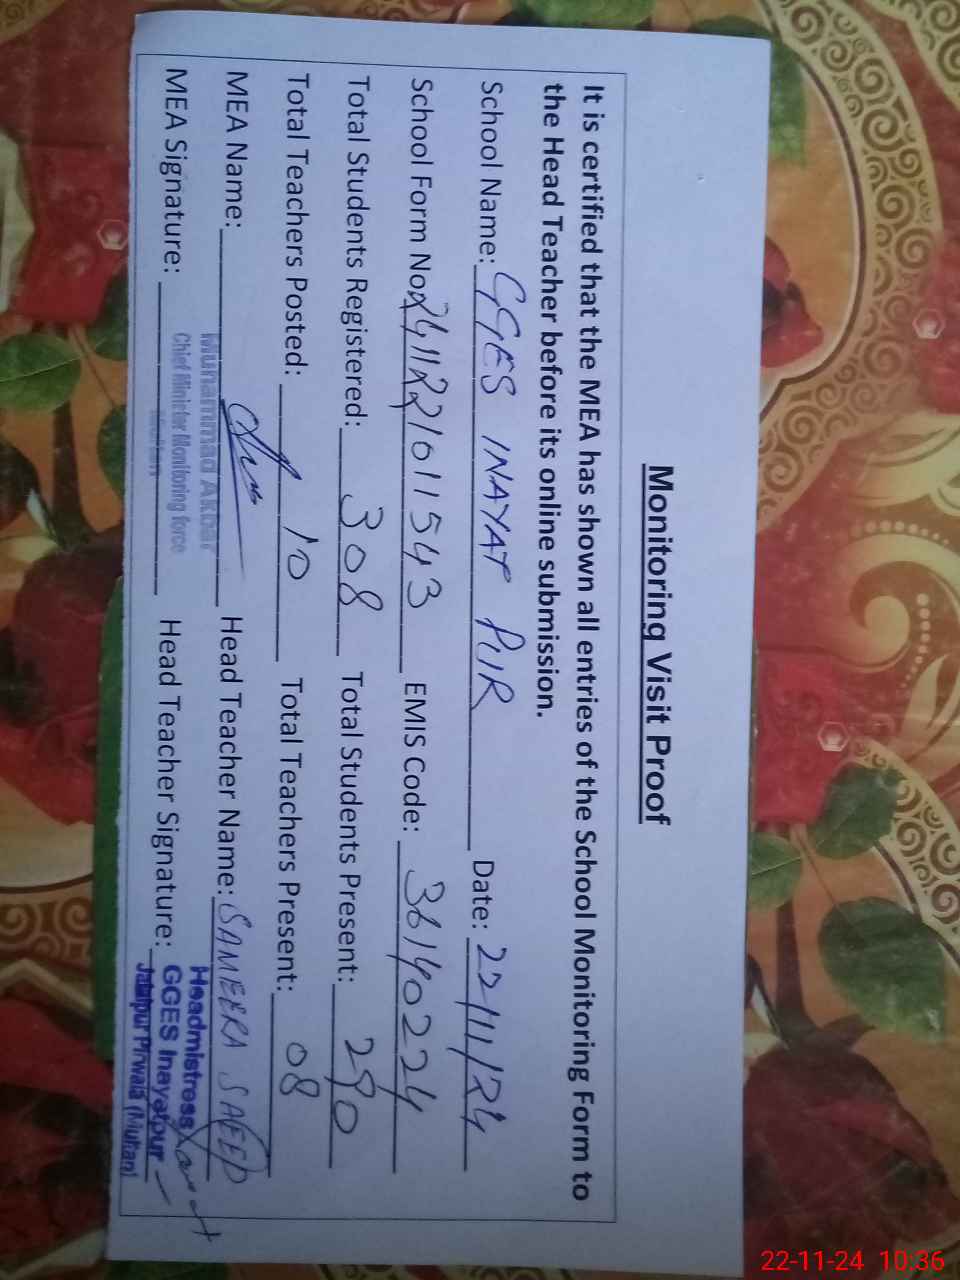 Monitoring Visit Proof
It is certified that the MEA has shown all entries of the School Monitoring Form to
the Head Teacher before its online submission.
School Name: GGES INAYAT PUR Date: 22/11/24
School Form No: 2411221011543 EMIS Code: 36140224
Total Students Registered: 308 Total Students Present: 290
Total Teachers Posted: 10 Total Teachers Present: 08
MEA Name: Muhammad Akbar Head Teacher Name: SAMEERA SAEED
MEA Signature: Chief Minister Monitoring force Head Teacher Signature:
Multan
Headmistress
GGES Inayatpur
Jalalpur Pirwala (Multan)
22-11-24 10:36